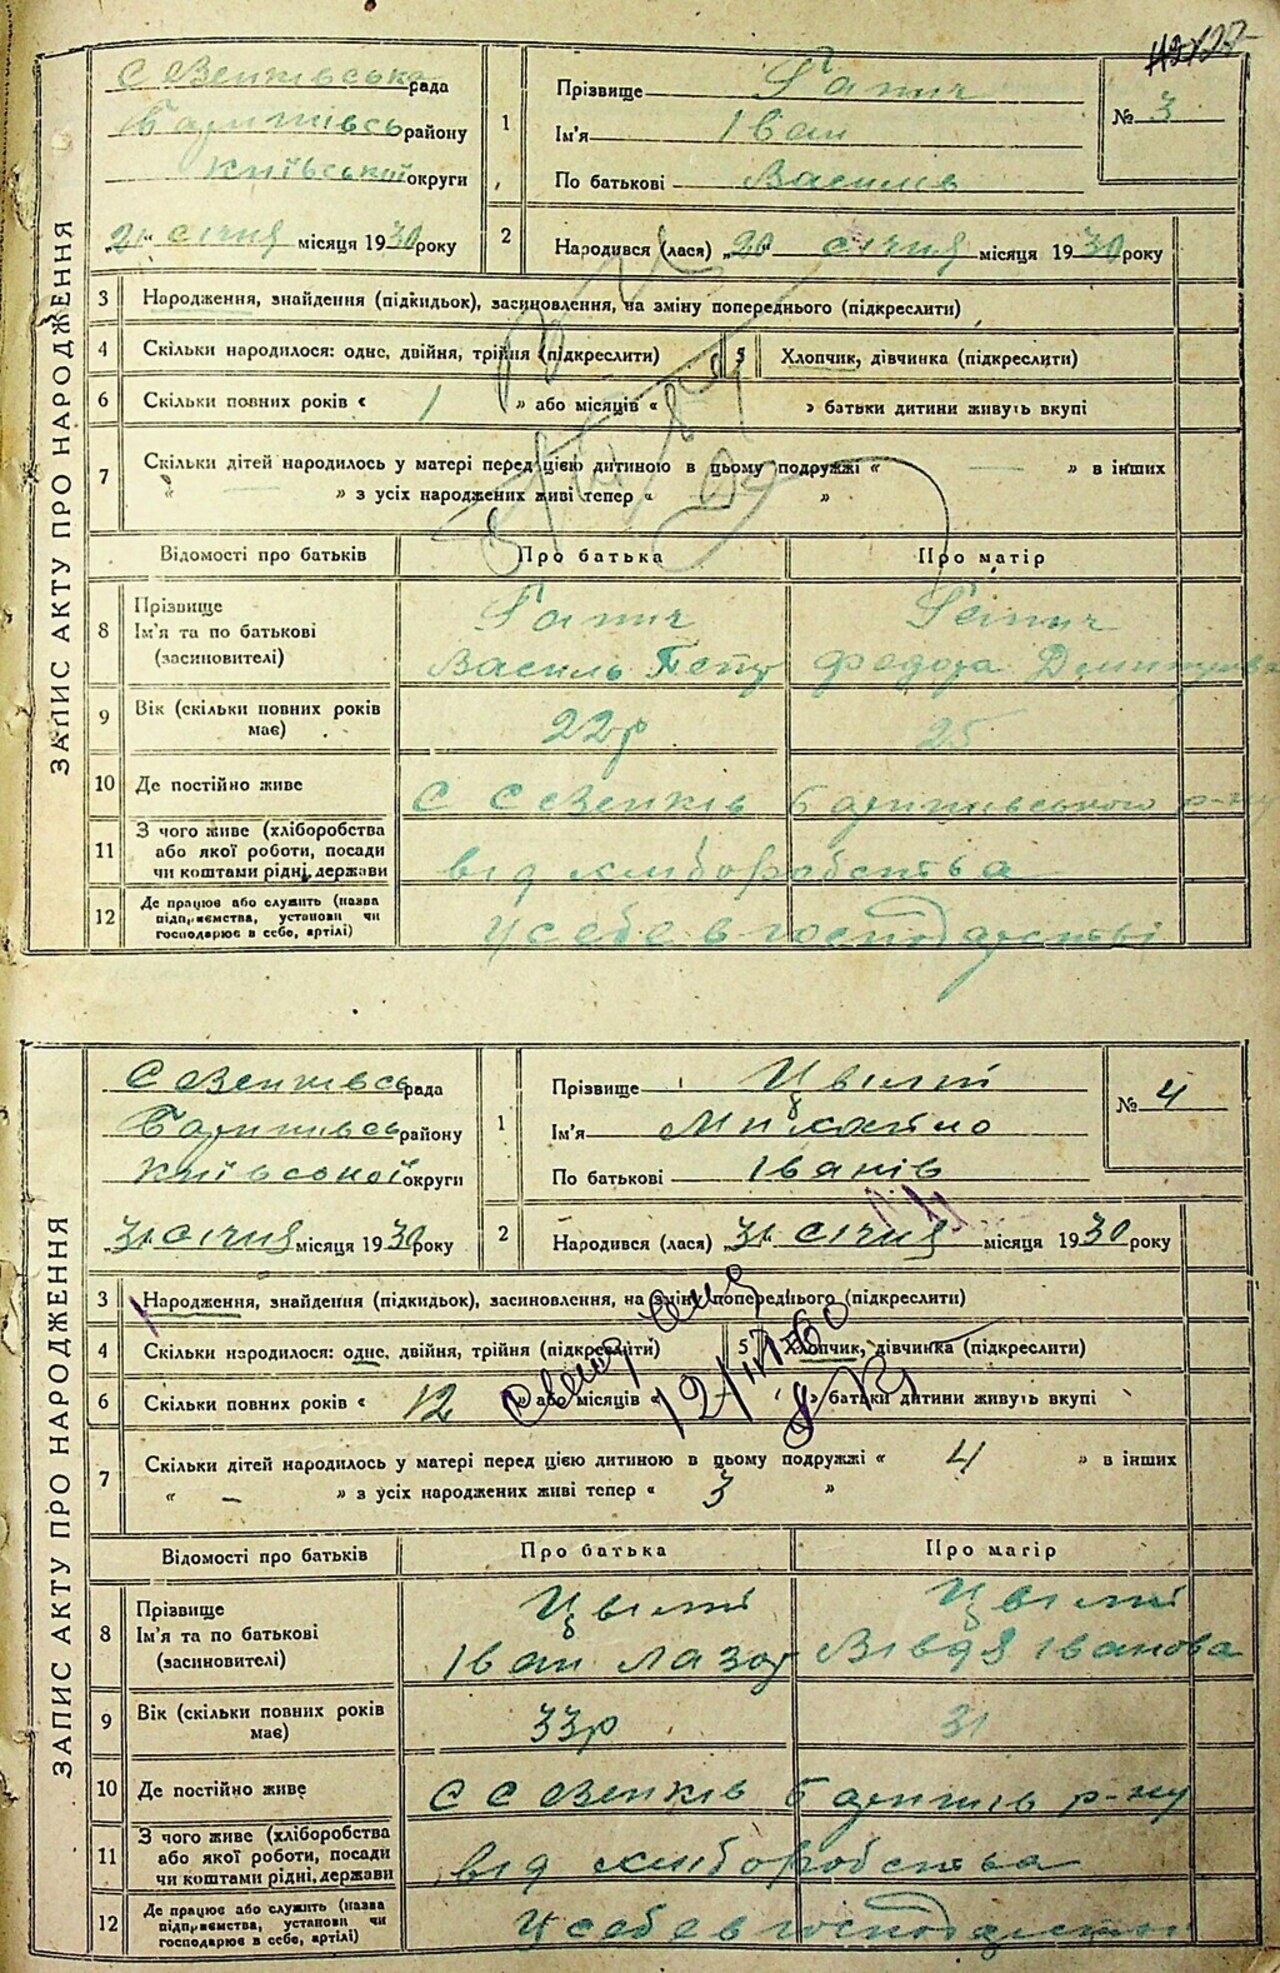 С Везенківська рада
Баришівсь району
Київської округи
„21“ січня місяця 1930 року
1 Прізвище Гапич
Ім'я Іван
По батькові Василів
№ 3
2 Народився (лася) „20“ січня місяця 1930 року
ЗАПИС АКТУ ПРО НАРОДЖЕННЯ
3 Народження, знайдення (підкидьок), засиновлення, на зміну попереднього (підкреслити)
4 Скільки народилося: одне, двійня, трійня (підкреслити) 5 Хлопчик, дівчинка (підкреслити)
6 Скільки повних років « 1 » або місяців « » батьки дитини живуть вкупі
7 Скільки дітей народилось у матері перед цією дитиною в цьому подружжі « — » в інших
« — » з усіх народжених живі тепер « »
Відомості про батьків Про батька Про матір
8 Прізвище Гапич Гапич
Ім'я та по батькові
(засиновителі) Василь Петр Федора Дмитрова
9 Вік (скільки повних років має) 22р 25
10 Де постійно живе С Сезенків Баришівського р-ну
11 З чого живе (хліборобства
або якої роботи, посади
чи коштами рідні, держави від хліборобства
12 Де працює або служить (назва
підприємства, установи чи
господарює в себе, артілі) У себе в господарстві
Сезенківсь рада
Баришівсь району
Київської округи
„31“ січня місяця 1930 року
1 Прізвище Цвілій
Ім'я Михайло
По батькові Іванів
№ 4
2 Народився (лася) „31“ січня місяця 1930 року
ЗАПИС АКТУ ПРО НАРОДЖЕННЯ
3 Народження, знайдення (підкидьок), засиновлення, на зміну попереднього (підкреслити)
4 Скільки народилося: одне, двійня, трійня (підкреслити) 5 Хлопчик, дівчинка (підкреслити)
6 Скільки повних років « 12 » або місяців « » батьки дитини живуть вкупі
7 Скільки дітей народилось у матері перед цією дитиною в цьому подружжі « 4 » в інших
« – » з усіх народжених живі тепер « 3 »
Відомості про батьків Про батька Про матір
8 Прізвище Цвілій Цвілій
Ім'я та по батькові
(засиновителі) Іван Лазор Вівдя Іванова
9 Вік (скільки повних років має) 33р 31
10 Де постійно живе С Сезенків Баришів р-ну
11 З чого живе (хліборобства
або якої роботи, посади
чи коштами рідні, держави від хліборобства
12 Де працює або служить (назва
підприємства, установи чи
господарює в себе, артілі) У себе в господарстві